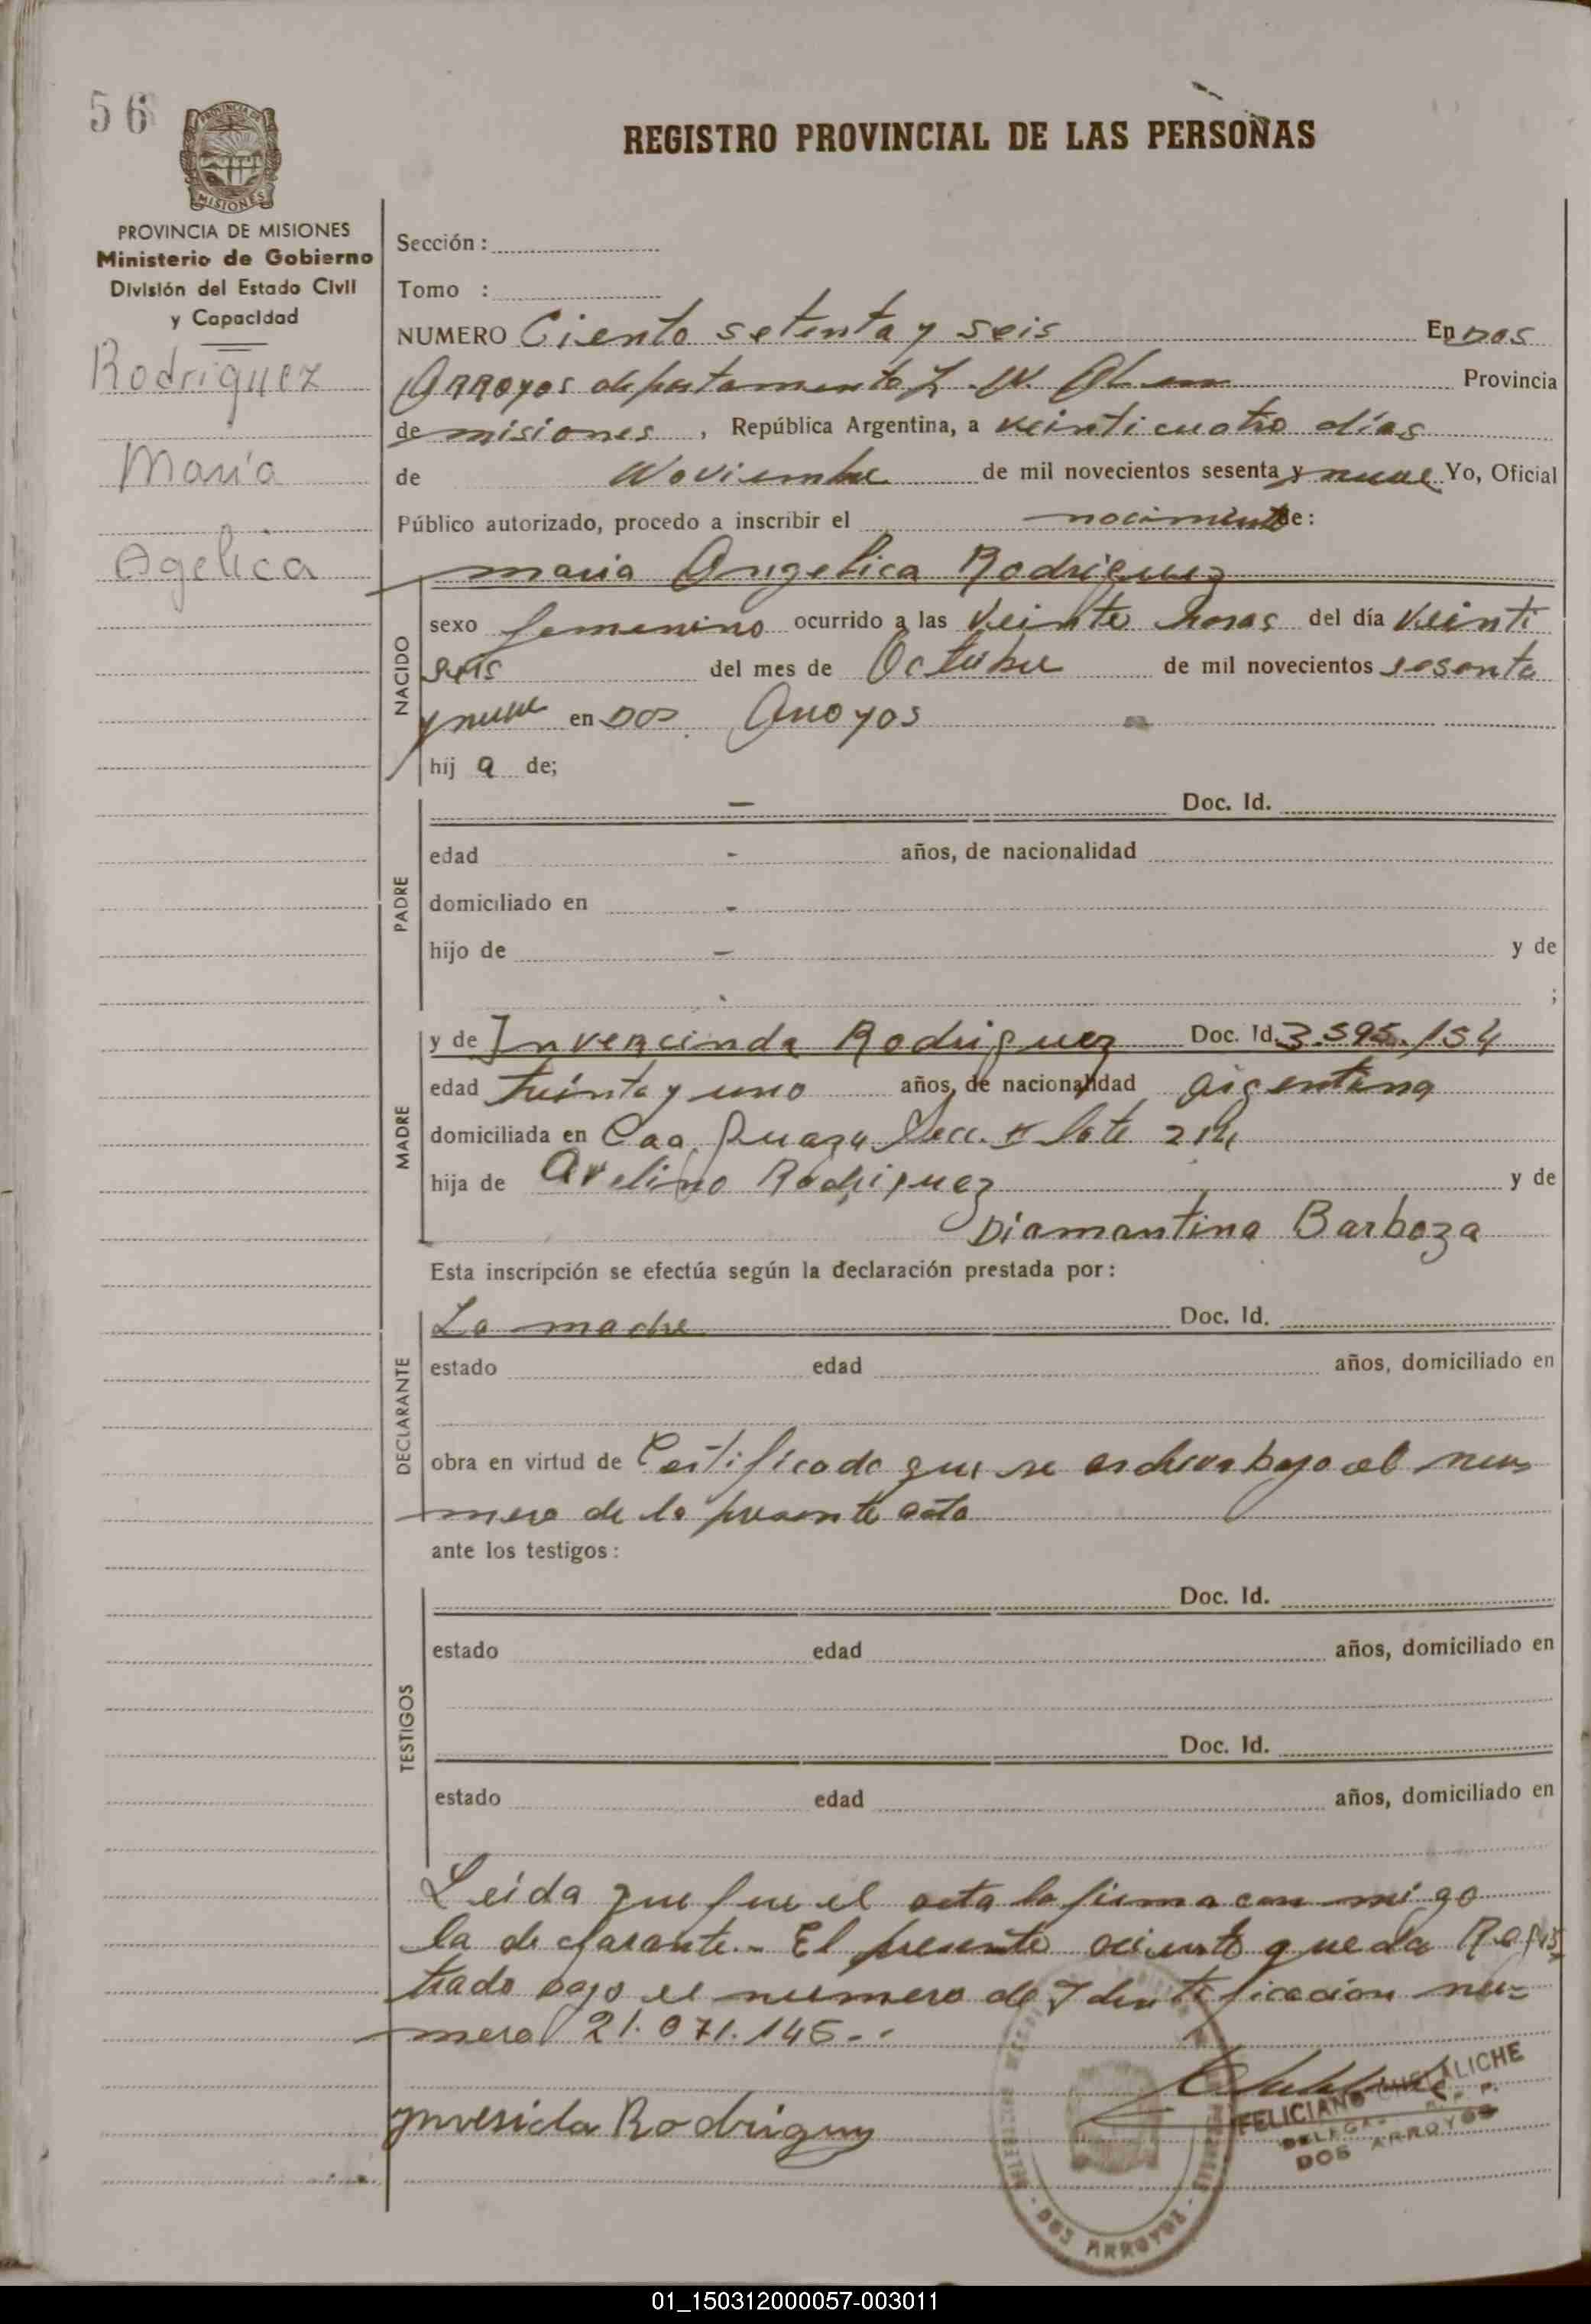 56
PROVINCIA DE
MISIONES
REGISTRO PROVINCIAL DE LAS PERSONAS
PROVINCIA DE MISIONES
Ministerio de Gobierno
División del Estado Civil
y Capacidad
Rodriguez
Maria
Agelica
Sección :
Tomo :
NUMERO Ciento setenta y seis En Dos
Arroyos departamento L. N. Alem Provincia
de misiones , República Argentina, a veinticuatro días
de Noviembre de mil novecientos sesenta y nueve Yo, Oficial
Público autorizado, procedo a inscribir el nacimiento de :
NACIDO
maria Angelica Rodriguez
sexo femenino ocurrido a las veinte horas del día veinti
seis del mes de Octubre de mil novecientos sesenta
y nueve en Dos Arroyos
hij a de;
PADRE
— Doc. Id.
edad - años, de nacionalidad
domiciliado en -
hijo de — y de
;
MADRE
y de Invercinda Rodriguez Doc. Id. 3.595.154
edad treinta y uno años, de nacionalidad argentina
domiciliada en Caa Guazu Secc. Lote 214
hija de Avelino Rodriguez y de
Diamantina Barboza
Esta inscripción se efectúa según la declaración prestada por :
DECLARANTE
La madre Doc. Id.
estado edad años, domiciliado en
obra en virtud de Certificado que se archiva bajo el nu
mero de la presente acta
ante los testigos :
TESTIGOS
Doc. Id.
estado edad años, domiciliado en
Doc. Id.
estado edad años, domiciliado en
Leida que fue el acta la firma con migo
la declarante.- El presente asiento queda Regis
trado bajo el numero de Identificacion nu-
mero 21.071.145.-
Rodriguez
FELICIANO
DELEGA R. P. P.
DOS ARROYOS
DOS ARROYOS
01_150312000057-003011